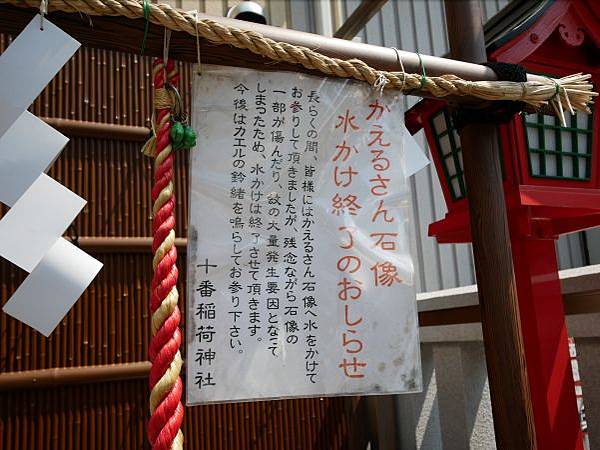 かえるさん石像
水かけ終了のおしらせ
長らくの間、皆様にはかえるさん石像へ水をかけて
お参りして頂きましたが、残念ながら石像の
一部が傷んだり、蚊の大量発生要因となって
しまったため、水かけは終了させて頂きます。
今後はカエルの鈴緒を鳴らしてお参り下さい。
十番稲荷神社